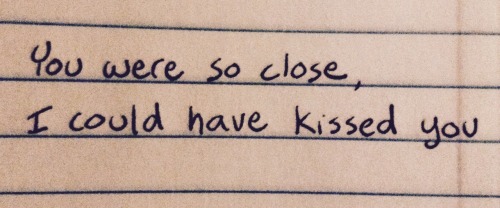 You were so close,
I could have kissed you